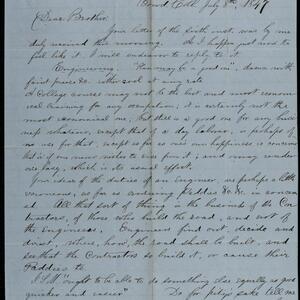 July 8th, 1847
Dear Brother,
Your letter of the sixth inst. was by me
duly received this morning. As I happen just now to
feel like it, I will endeavor to reply to it.
Engineering "Pam may be good in", damn
faint praise &c. the soul at any rate
A College course may not be the best and most
training for any occupation; it is certainly not the
most economical one; but there is a good one for any business
whatever, except that of a day labour, or perhaps of
no use for that, except so far as our own happiness is concerned
but if our mind wishes to use for it; and may render
one lazy, which is its usual effect.
Your ideas of the duties of an engineer, are perhaps a little
erroneous, as far as Paddies &c. &c. is concerned
All that sort of thing is the business of the Con-
tractors, of those who build the road, and not of
the engineers. Engineers find out, decide and
direct, where, how, the road shall be built, and
see that the Contractors so build it, or cause their
Paddies to
I ought to be able to do something else equally as good
quicker and easier. Do for pity's sake tell me